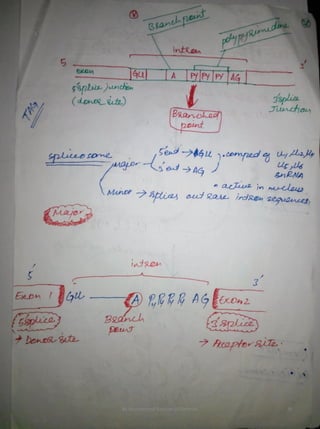 Branch point
polypyrimidine
intron
5' 3'
Exon GU A PY PY PY AG
5' splice junction
(donor site)
3' splice
Junction
TAG
Branched
point
spliceosome
Major
5' cut → GU
3' cut → AG
composed of U1, U2, U4
U5, U6
SnRNA
• active in nucleus
Minor → splices out rare intron sequences
Major
intron
5' 3'
Exon 1 GU A Py Py Py Py AG Exon2
5' splice
Branch
point
3' splice
→ Donor site
→ Acceptor site.